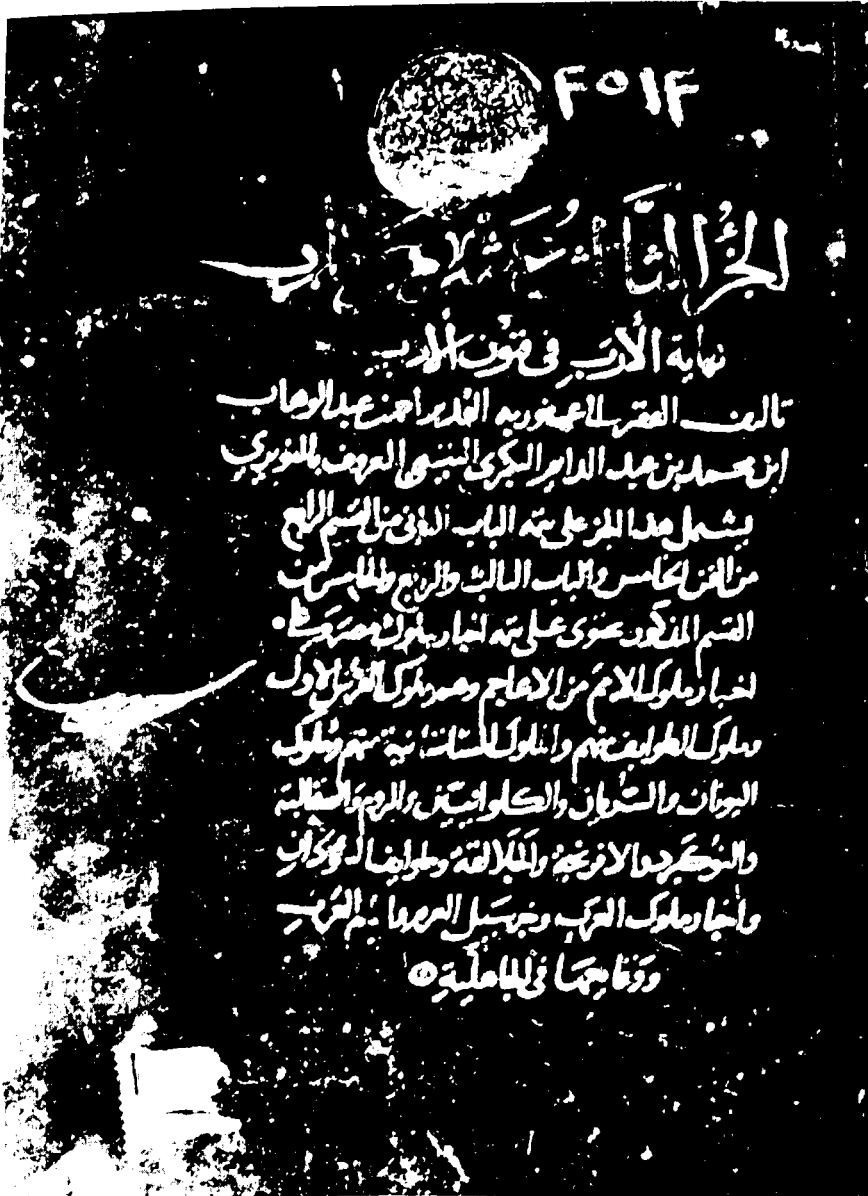 ٢٥١٢
الجزء الثالث عشر من كتاب
نهاية الأرب في فنون الأدب
تأليف الفقير إلى عفو ربه القدير أحمد بن عبد الوهاب
ابن محمد بن عبد الدايم البكري التيمي المعروف بالنويري
يشتمل هذا الجزء على تتمة الباب الثاني من القسم الرابع
من الفن الخامس والباب الثالث والرابع والخامس من
القسم المذكور يحتوي على تتمة أخبار ملوك مصر و
أخبار ملوك الأمم من الأعاجم وهم ملوك الفرس الأول
وملوك الطوايف منهم والملوك الساسانية منهم وملوك
اليونان والسريان والكلوانيين والروم والصقالبة
والنوكبرد والافرنجة والجلالقة وطوايف السودان
وأخبار ملوك العرب وخبر سيل العرم وأيام العرب
ووقايعها في الجاهلية